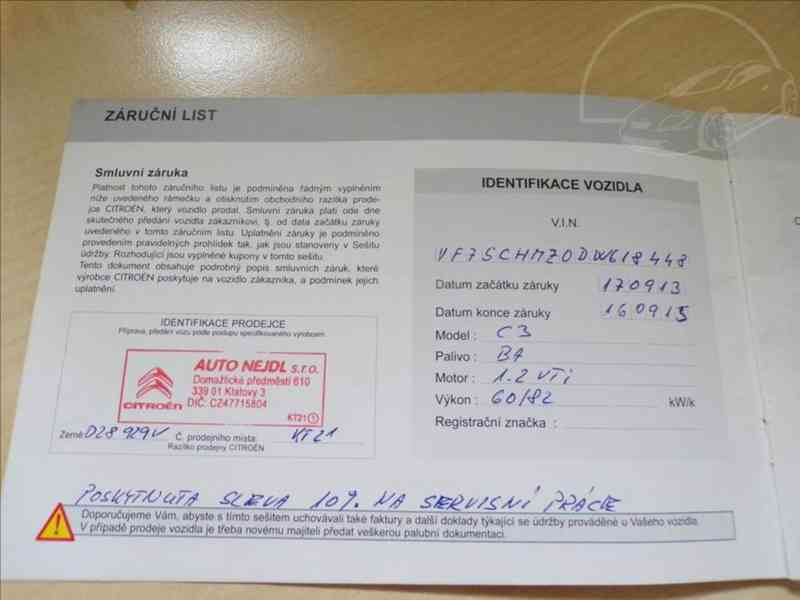 ZÁRUČNÍ LIST
Smluvní záruka
Platnost tohoto záručního listu je podmíněna řádným vyplněním
níže uvedeného rámečku a otisknutím obchodního razítka prode-
jce CITROËN, který vozidlo prodal. Smluvní záruka platí ode dne
skutečného předání vozidla zákazníkovi, tj. od data začátku záruky
uvedeného v tomto záručním listu. Uplatnění záruky je podmíněno
provedením pravidelných prohlídek tak, jak jsou stanoveny v Sešitu
údržby. Rozhodující jsou vyplněné kupony v tomto sešitu.
Tento dokument obsahuje podrobný popis smluvních záruk, které
výrobce CITROËN poskytuje na vozidlo zákazníka, a podmínek jejich
uplatnění.
IDENTIFIKACE PRODEJCE
Příprava, předání vozu podle postupu specifikovaného výrobcem
AUTO NEJDL s.r.o.
Domažlické předměstí 610
339 01 Klatovy 3
DIČ: CZ47715804
CITROËN
KT21 1
Země: D28 929V Č. prodejního místa: KT21
Razítko prodejny CITROËN
IDENTIFIKACE VOZIDLA
V.I.N.
VF7SCHMZ0DW618448
Datum začátku záruky 170913
Datum konce záruky 160915
Model : C3
Palivo : BA
Motor : 1.2 VTi
Výkon : 60/82 kW/k
Registrační značka :
POSKYTNUTA SLEVA 10% NA SERVISNÍ PRÁCE
Doporučujeme Vám, abyste s tímto sešitem uchovávali také faktury a další doklady týkající se údržby prováděné u Vašeho vozidla.
V případě prodeje vozidla je třeba novému majiteli předat veškerou palubní dokumentaci.